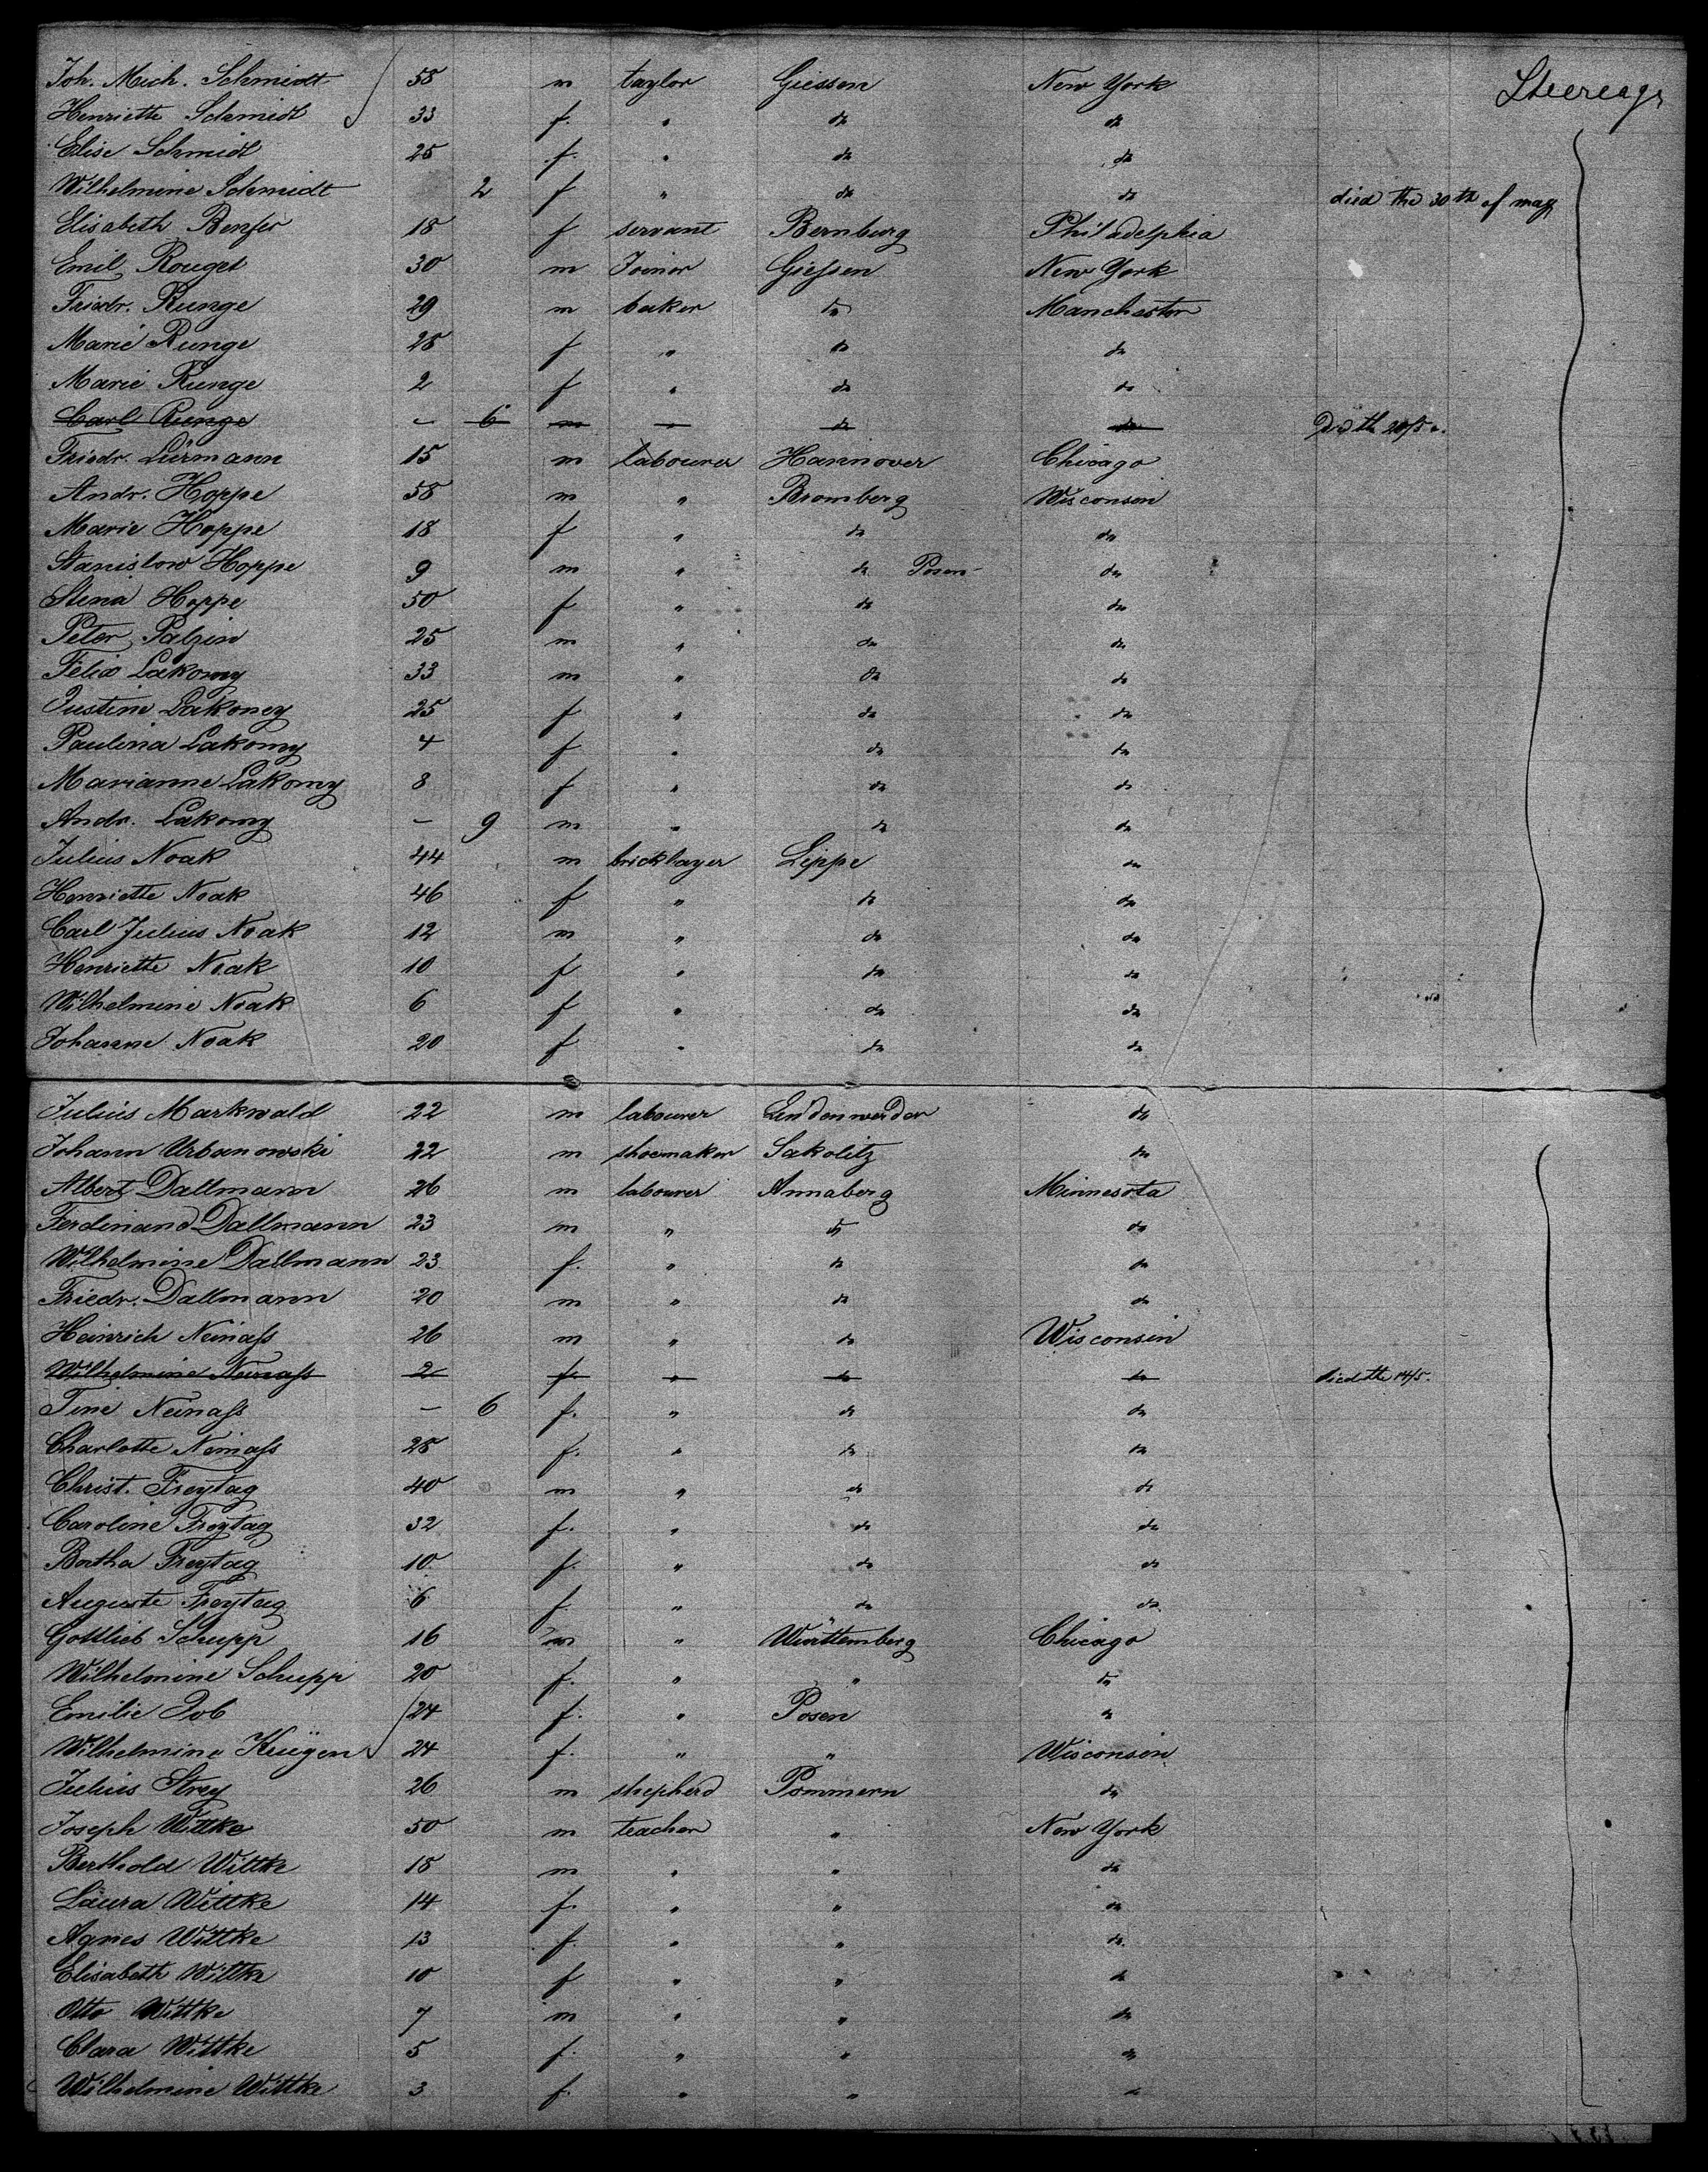 Steerage
Joh. Mich. Schmidt 58 m taylor Giessen New York
Henriette Schmidt 33 f. " do do
Elise Schmidt 25 f. " do do
Wilhelmine Schmidt 2 f " do do died the 30th of may
Elisabeth Benfer 18 f servant Bernburg Philadelphia
Emil Rouget 30 m Joiner Giessen New York
Friedr. Runge 29 m baker do Manchester
Marie Runge 28 f " do do
Marie Runge 2 f " do do
Carl Runge - 6 m " do do
Friedr. Lürmann 15 m labourer Hannover Chicago
Andr. Hoppe 58 m " Bromberg Wisconsen
Marie Hoppe 18 f " do do
Stanislow Hoppe 9 m " do Posen do
Stena Hoppe 50 f " do do
Peter Palzin 25 m " do do
Felix Lakomy 33 m " do do
Justine Lakomey 25 f " do do
Paulina Lakomy 4 f " do do
Marianne Lakomy 8 f " do do
Andr. Lakomy - 9 m " do do
Julius Noak 44 m bricklayer Lippe do
Henriette Noak 46 f " do do
Carl Julius Noak 12 m " do do
Henriette Noak 10 f " do do
Wilhelmine Noak 6 f " do do
Johanne Noak 20 f " do do
Julius Markwald 22 m labourer Lindenwerder do
Johann Urbanowski 22 m shoemaker Sakolitz do
Albert Dallmann 26 m labourer Annaberg Minnesota
Ferdinand Dallmann 23 m " do do
Wilhelmine Dallmann 23 f. " do do
Friedr. Dallmann 20 m " do do
Heinrich Neinass 26 m " do Wisconsin
Wilhelmine Neinass 2 f. " do do died the 14/5.
Tine Neinass - 6 f. " do do
Charlotte Neinass 28 f. " do do
Christ. Freytag 40 m " do do
Caroline Freytag 32 f. " do do
Bertha Freytag 10 f. " do do
Auguste Freytag 6 f. " do do
Gottlieb Schupp 16 m " Württemberg Chicago
Wilhelmine Schupp 20 f. " " do
Emilie Job 24 f. " Posen do
Wilhelmine 24 f. " " Wisconsin
Julius Strey 26 m shepherd Pommern do
Joseph Wittke 50 m teacher " New York
Berthold Wittke 18 m " " do
Laura Wittke 14 f. " " do
Agnes Wittke 13 f. " " do
Elisabeth Wittke 10 f " " do
Otto Wittke 7 m " " do
Clara Wittke 5 f. " " do
Wilhelmine Wittke 3 f. " " do